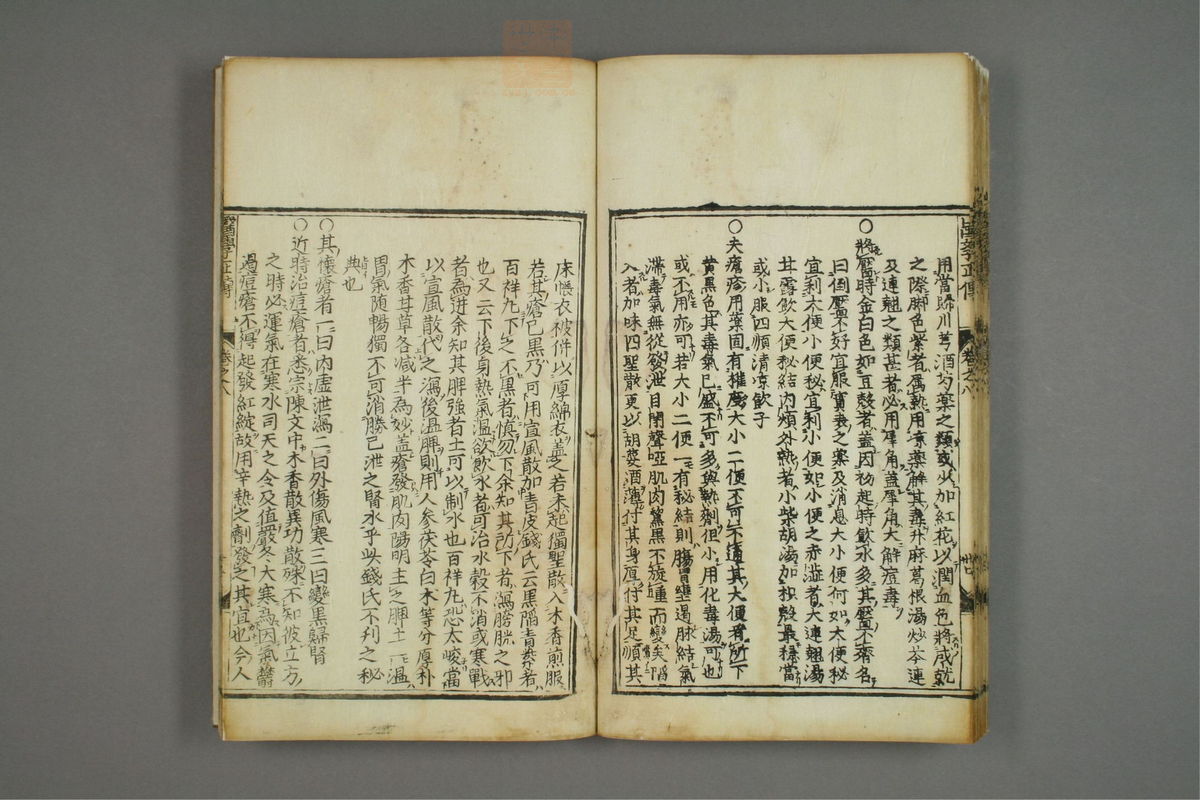 用當歸川芎酒芍藥之類或少加紅花以潤血色將成就
之際脚色紫者属熱用凉藥解其毒升麻葛根湯炒芩連
及連翹之類甚者必用犀角盖犀角大解痘毒
○將靨時金白色如豆殼者盖因初起時飲水多其靨不齊名
曰倒靨不好宜服實表之藥及消息大小便何如大便秘
宜利大便小便秘宜利小便如小便之赤澁者大連翹湯
甘露飲大便秘結内煩外熱者小柴胡湯加枳殼最穩當
或小服四順清凉飲子
○夫瘡疹用藥固有權度大小二便不可不通其大便有所下
黄黑色其毒氣已盛不可多與熱劑但小用化毒湯可也
或不用亦可若大小二便一有秘結則腸胃壅遏脉結氣
滞毒氣無從發泄目閉聲啞肌肉黧黑不旋踵而變矣陷
入者加味四聖散更以胡荽酒薄付其身厚付其足順其
床帳衣被併以厚綿衣盖之若未起獨聖散入木香煎服
若其瘡已黑乃可用宣風散加青皮錢氏云黑陷青紫者
百祥丸下之不黑者慎勿下余知其所下者瀉膀胱之邪
也又云下後身熱氣温欲飲水者可治水穀不消或寒戰
者為逆余知其脾強者土可以制水也百祥丸恐太峻當
以宣風散代之瀉後温脾則用人参茯苓白术等分厚朴
木香甘草各减半為妙盖瘡發肌肉陽明主之脾土一温
胃氣随暢獨不可消勝已泄之腎水乎此錢氏不刋之秘
典也
○其懷瘡者一曰内虚泄瀉二曰外傷風寒三曰變黑歸腎
○近時治痘瘡者悉宗陳文中木香散異功散殊不知彼立方
之時必運氣在寒水司天之令及值嚴冬大寒為因氣欝
遏痘瘡不得起發紅綻故用辛熱之劑發之其宜也今人
醫學正傳
卷之八